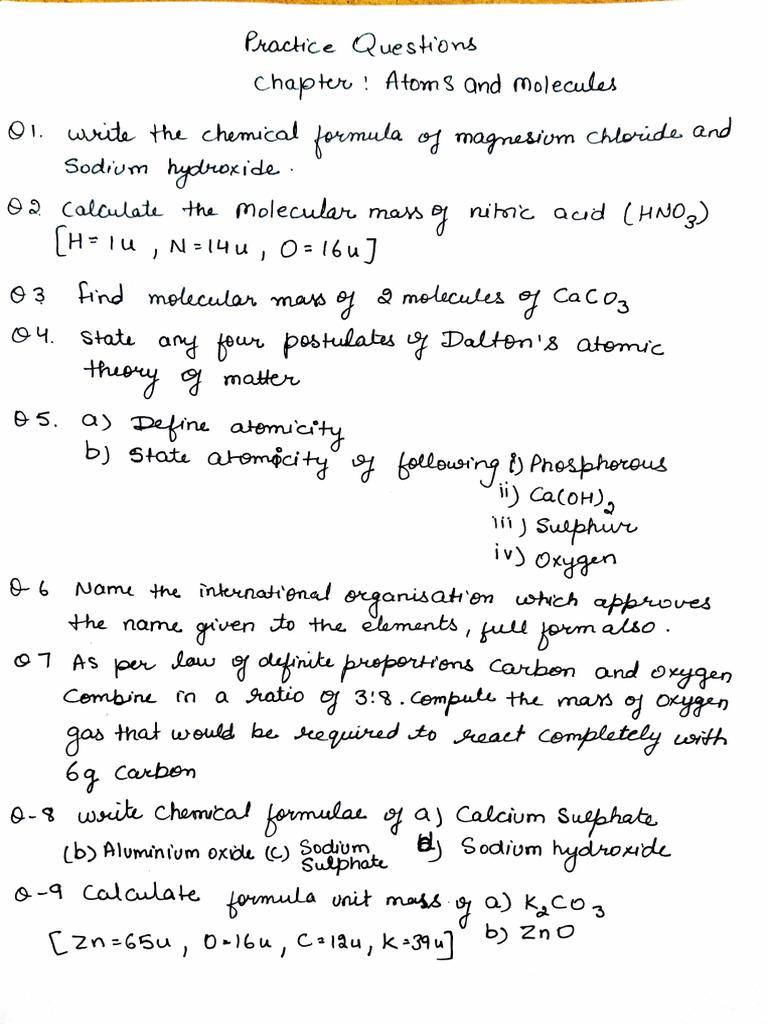 Practice Questions
Chapter : Atoms and Molecules
Q1. Write the chemical formula of magnesium chloride and
Sodium hydroxide.
Q2. Calculate the Molecular mass of nitric acid (HNO₃)
[H = 1u , N = 14u , O = 16u]
Q3 find molecular mass of 2 molecules of CaCO₃
Q4. State any four postulates of Dalton's atomic
theory of matter
Q5. a) Define atomicity
b) State atomicity of following i) Phosphorous
ii) Ca(OH)₂
iii) Sulphur
iv) Oxygen
Q-6 Name the international organisation which approves
the name given to the elements, full form also.
Q7 As per law of definite proportions Carbon and oxygen
Combine in a ratio of 3:8. Compute the mass of oxygen
gas that would be required to react completely with
6g carbon
Q-8 Write Chemical formulae of a) Calcium Sulphate
(b) Aluminium oxide (c) Sodium Sulphate d) Sodium hydroxide
Q-9 Calculate formula unit mass of a) K₂CO₃
[Zn=65u , O=16u , C=12u, K=39u] b) ZnO